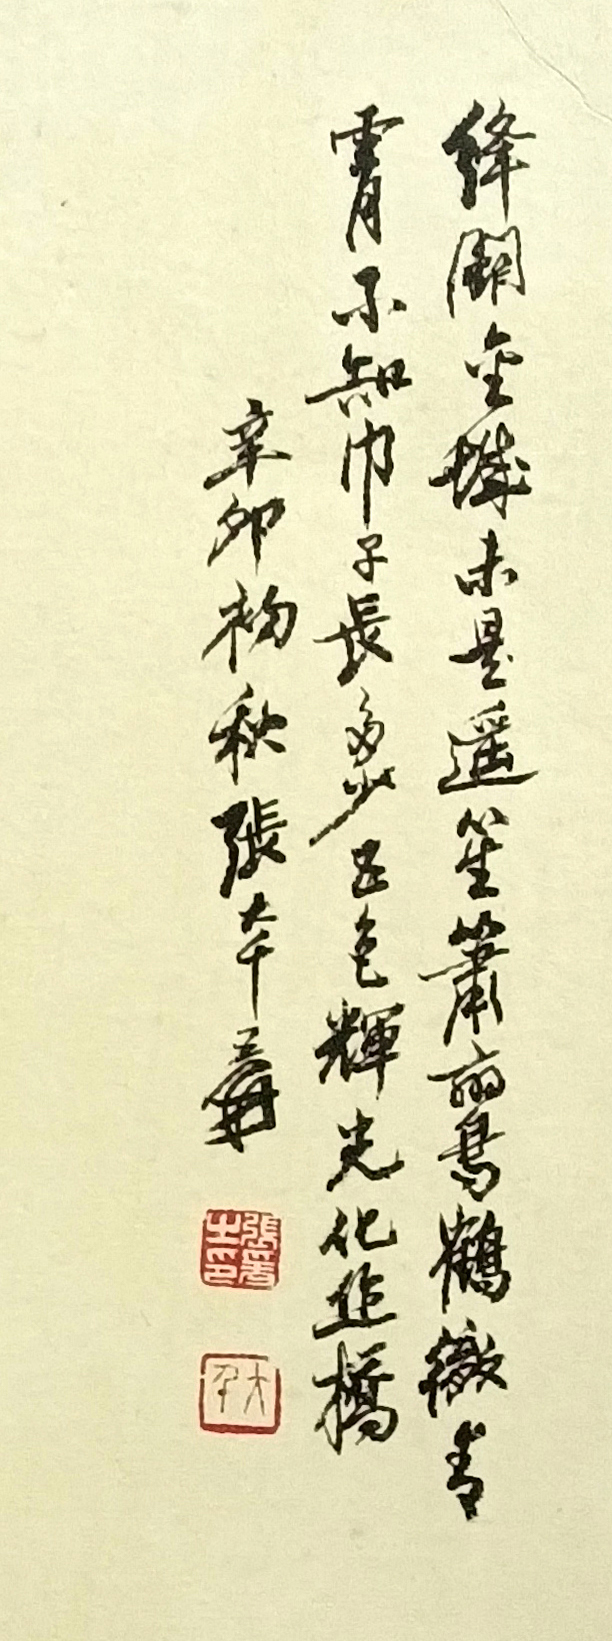 絳闕金城未是遥笙簫鸞鶴徹青
霄不知巾子長多少五色輝光化作橋
辛卯初秋張大千爰
張爰之印
大千